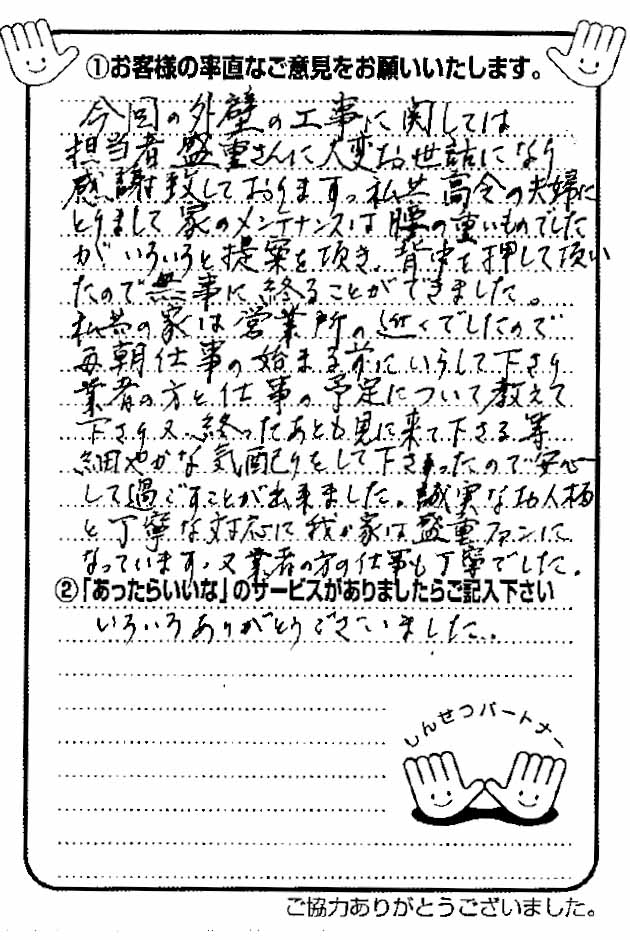 ①お客様の率直なご意見をお願いいたします。
今回の外壁の工事に関しては
担当者 盛重さんに大変お世話になり
感謝致しております。私共 高令の夫婦に
とりまして 家のメンテナンスは 腰の重いものでした
が いろいろと提案を頂き、背中を押して頂い
たので無事に終ることができました。
私共の家は営業所の近くでしたので
毎朝仕事の始まる前にいらして下さり
業者の方と仕事の予定について教えて
下さり又、終ったあとも見に来て下さる等
細やかな気配りをして下さったので安心
して過ごすことが出来ました。誠実なお人柄
と丁寧な対応に我が家は盛重ファンに
なっています。又業者の方の仕事も丁寧でした。
②「あったらいいな」のサービスがありましたらご記入下さい
いろいろありがとうございました。
しんせつパートナー
ご協力ありがとうございました。